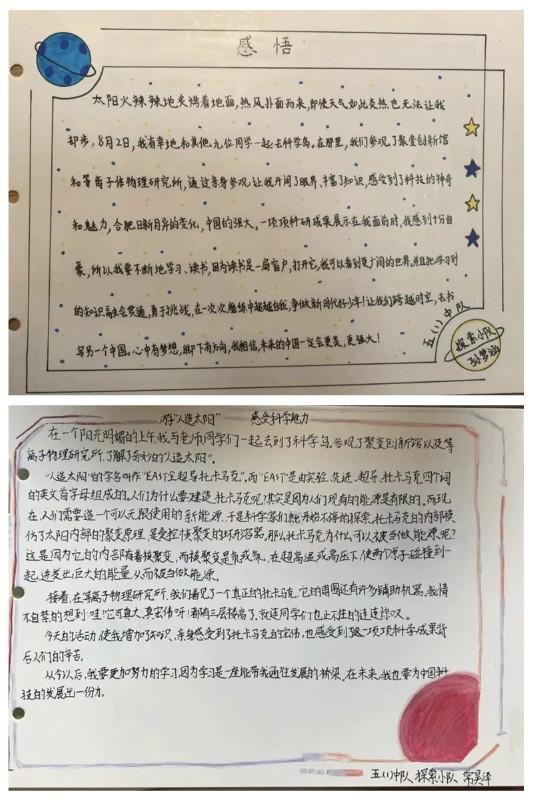 感悟
太阳火辣辣地炙烤着地面,热风扑面而来,即使天气如此炎热,也无法让我
却步,8月2日,我有幸地和其他九位同学一起去科学岛。在那里,我们参观了聚变创新馆
和等离子体物理研究所,通过亲身参观,让我开阔了眼界、丰富了知识,感受到了科技的神奇
和魅力,合肥日新月异的变化,中国的强大。一项项科研成果展示在我面前时,我感到十分自
豪,所以我要不断地学习、读书,因为读书是一扇窗户,打开它,我可以看到更广阔的世界,并且把学习到
的知识融会贯通,勇于挑战,在一次次磨练中超越自我,争做新时代好少年!让我们跨越时空,去书
写另一个中国。心中有梦想,脚下有方向,我相信,未来的中国一定会更美,更强大!
五(1)中队
探索小队
孙梦涵
游“人造太阳” 感受科学魅力
在一个阳光明媚的上午,我与老师同学们一起去到了科学岛,参观了聚变创新馆以及等
离子物理研究所,了解了奇妙的“人造太阳”。
“人造太阳”的学名叫作“EAST全超导托卡马克”,而“EAST”是由实验、先进、超导、托卡马克四个词
的英文首字母组成的。人们为什么要建造托卡马克呢?其实是因为人们现有的能源是有限的,而现
在,人们需要造一个可以无限使用的新能源,于是科学家们就开始不停的探索。托卡马克的内部模
仿了太阳内部的聚变原理,是受控核聚变的环形容器,那么托卡马克为什么可以被当做能源呢?
这是因为它的内部有着核聚变,而核聚变是氘或氚,在超高温或高压下,使两个原子碰撞到一
起,迸发出巨大的能量,从而被当做能源。
接着,在等离子物理研究所,我们看见了一个真正的托卡马克,它的周围还有许多辅助机器,我情
不自禁的想到:哇!它可真大,真宏伟呀!都有三层楼高了,就连同学们也止不住的连连惊叹。
今天的活动,使我增加了知识,亲身感受到了托卡马克的宏伟,也感受到了每一项项科学成果背
后人们的辛苦。
从今以后,我要更加努力的学习,因为学习是一座能带我通往发展的桥梁,在未来,我也要为中国科
技的发展出一份力。
五(1)中队 探索小队